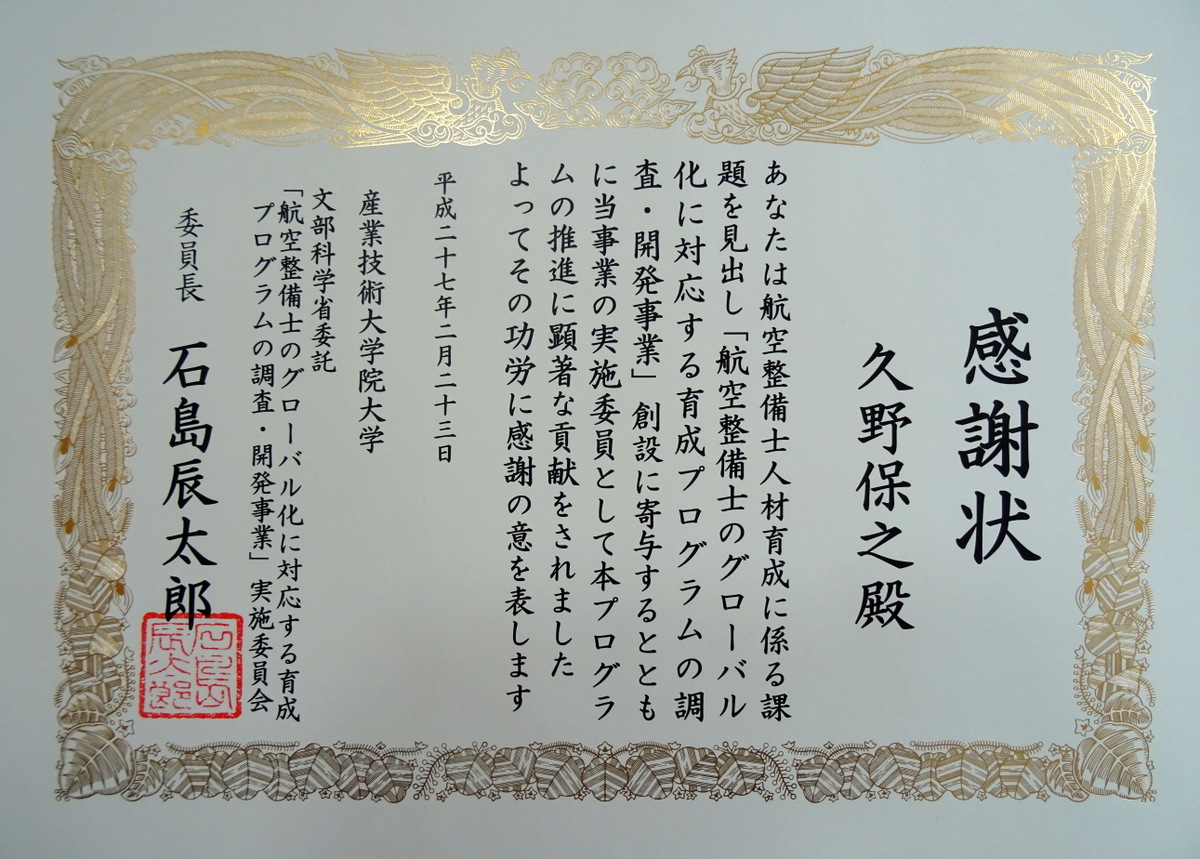 感謝状
久野保之殿
あなたは航空整備士人材育成に係る課
題を見出し「航空整備士のグローバル
化に対応する育成プログラムの調
査・開発事業」創設に寄与するととも
に当事業の実施委員として本プログラ
ムの推進に顕著な貢献をされました
よってその功労に感謝の意を表します
平成二十七年二月二十三日
産業技術大学院大学
文部科学省委託
「航空整備士のグローバル化に対応する育成
プログラムの調査・開発事業」実施委員会
委員長 石島辰太郎
石島辰太郎